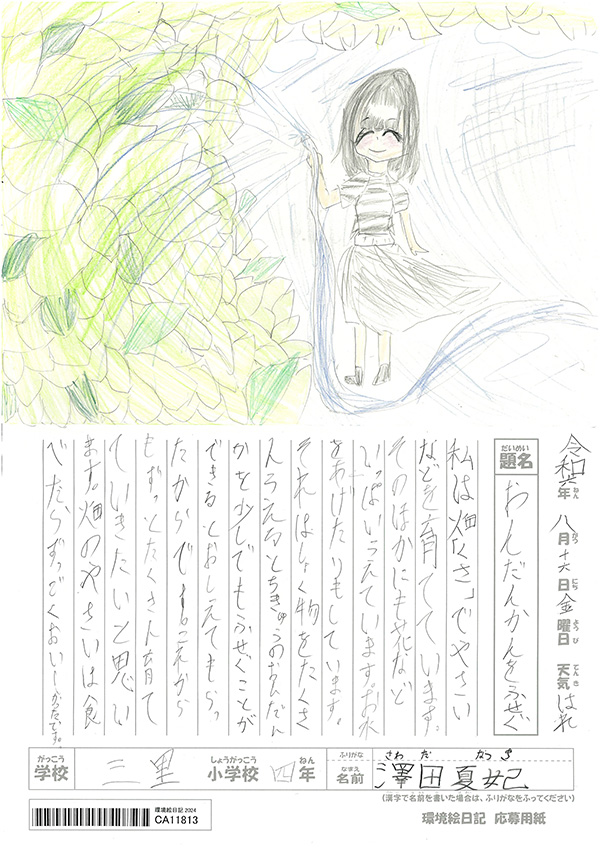 令和六年 八月十六日 金曜日 天気 はれ
ねん がつ にち ようび てんき
だいめい
題名 おんだんかんをふせぐ
私は畑「くさ」でやさい
などを育てています。
そのほかにも花など
いっぱいうえています。お水
をあげたりもしています。
それはしょく物をたくさ
んうえるとちきゅうのおんだん
かを少しでもふせぐことが
できるとおしえてもらっ
たからです。これから
もずっとたくさん育て
ていきたいと思い
ます。畑のやさいは食
べたらすっごくおいしかったです。
がっこう
学校 三里 小学校 四年
しょうがっこう ねん
ふりがな さわ だ なつ き
なまえ
名前 澤田夏妃
(漢字で名前を書いた場合は、ふりがなをふってください)
環境絵日記 2024
CA11813
環境絵日記 応募用紙